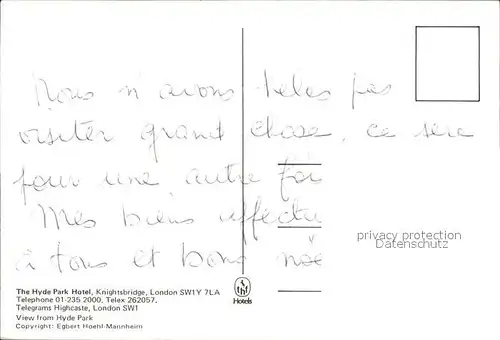 Nous n'avons hélas pas
visiter grand chose, ce sera
pour une autre foi
Mes biens affectu
à tous et bons noë
privacy protection
Description
The Hyde Park Hotel, Knightsbridge, London SW1Y 7LA
Telephone 01-235 2000, Telex 262057,
Telegrams Highcaste, London SW1
View from Hyde Park
Copyright: Egbert Hoehl-Mannheim
Hotels